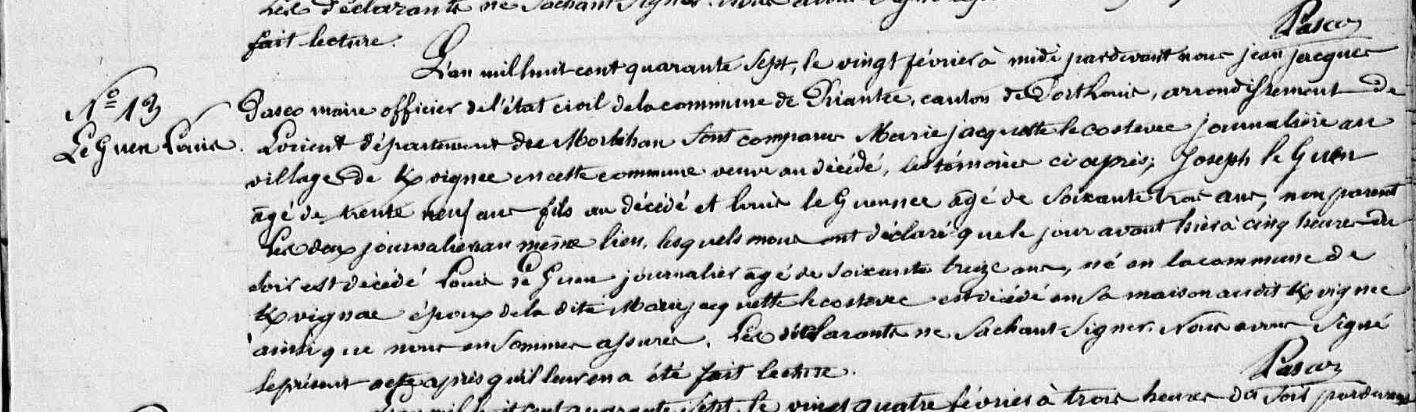 Les déclarants ne sachant signer. Nous avons signé
fait lecture.
Pasco
L'an mil huit cent quarante sept, le vingt février à midi pardevant nous jean jacques
N° 13
Pasco maire officier de l'état civil de la commune de Riantec, canton de Porthouis, arrondissement de
Le Guen Louis.
Lorient département du Morbihan sont comparus Marie jacquette le costevec journalière au
village de Kvignec en cette commune veuve au décédé, les témoins ci après; Joseph le Guen
âgé de trente neuf ans fils au décédé et louis le Guennec âgé de soixante trois ans, non parent
Les deux journaliers au même lieu, lesquels nous ont déclaré que le jour avant hier à cinq heures du
soir est décédé Louis le Guen journalier âgé de soixante treize ans, né en la commune de
Kvignac époux de la dite Marie jacquette le costevec est décédé en sa maison audit Kvignec
ainsi que nous en sommes assurés. Les déclarants ne sachant signer. Nous avons signé
le présent acte après qu'il leur en a été fait lecture.
Pasco
L'an mil huit cent quarante sept, le vingt quatre février à trois heures du soir pardevant